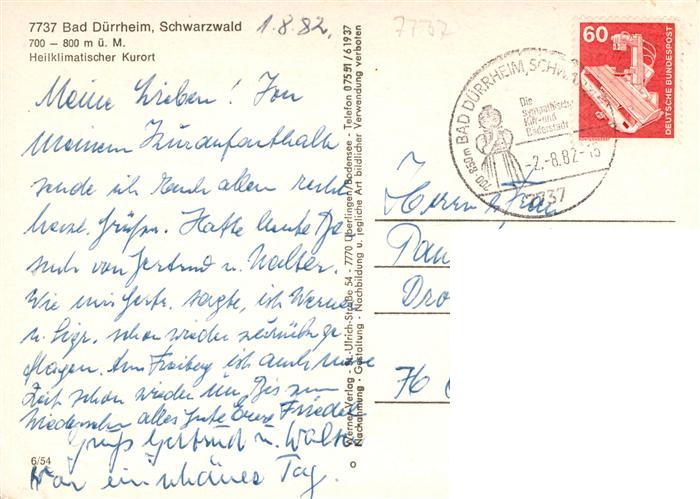 7737 Bad Dürrheim, Schwarzwald
700 – 800 m ü. M.
Heilklimatischer Kurort
1.8.82.
7737
Meine Lieben! Von
meinem Kuraufenthalt
sende ich Euch allen recht
herzl. Grüße. Hatte heute Be
such von Gertrud u. Walter.
Wie mir Gertr. sagte, ist Werner
u. Sigr. schon wieder zurückge
flogen. Am Freitag ist auch meine
Zeit schon wieder um, Bis zum
Wiedersehen alles Gute Eure Friedel
Gruß Gertrud u. Walter
War ein schönes Tag.
6/54
Werner Verlag - St.-Ulrich-Straße 54 - 7770 Überlingen/Bodensee - Telefon 07551/61937
Nachahmung - Gestaltung - Nachbildung u. jegliche Art bildlicher Verwendung verboten
60
DEUTSCHE BUNDESPOST
700-850m BAD DÜRRHEIM, SCHW
Die
sympathische
Kur- und
Bäderstadt
-2.-8.82-15
7737
Herrn u. Frau